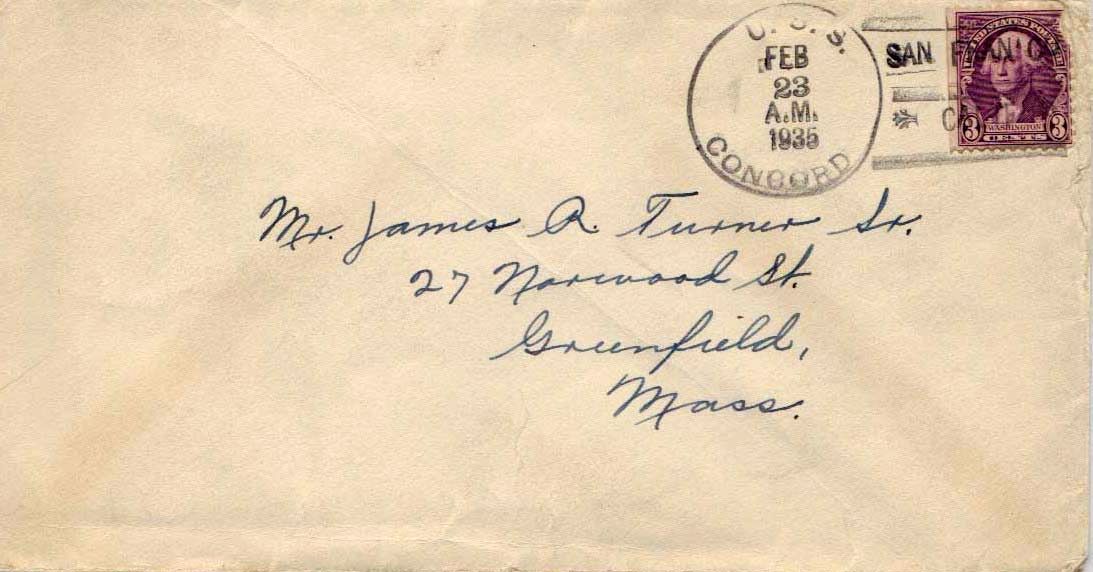 U.S.S.
FEB
23
A.M.
1935
CONCORD
SAN FRANC
CA
UNITED STATES POSTAGE
3 WASHINGTON 3
CENTS
Mr. James R. Turner Sr.
27 Norwood St.
Greenfield,
Mass.